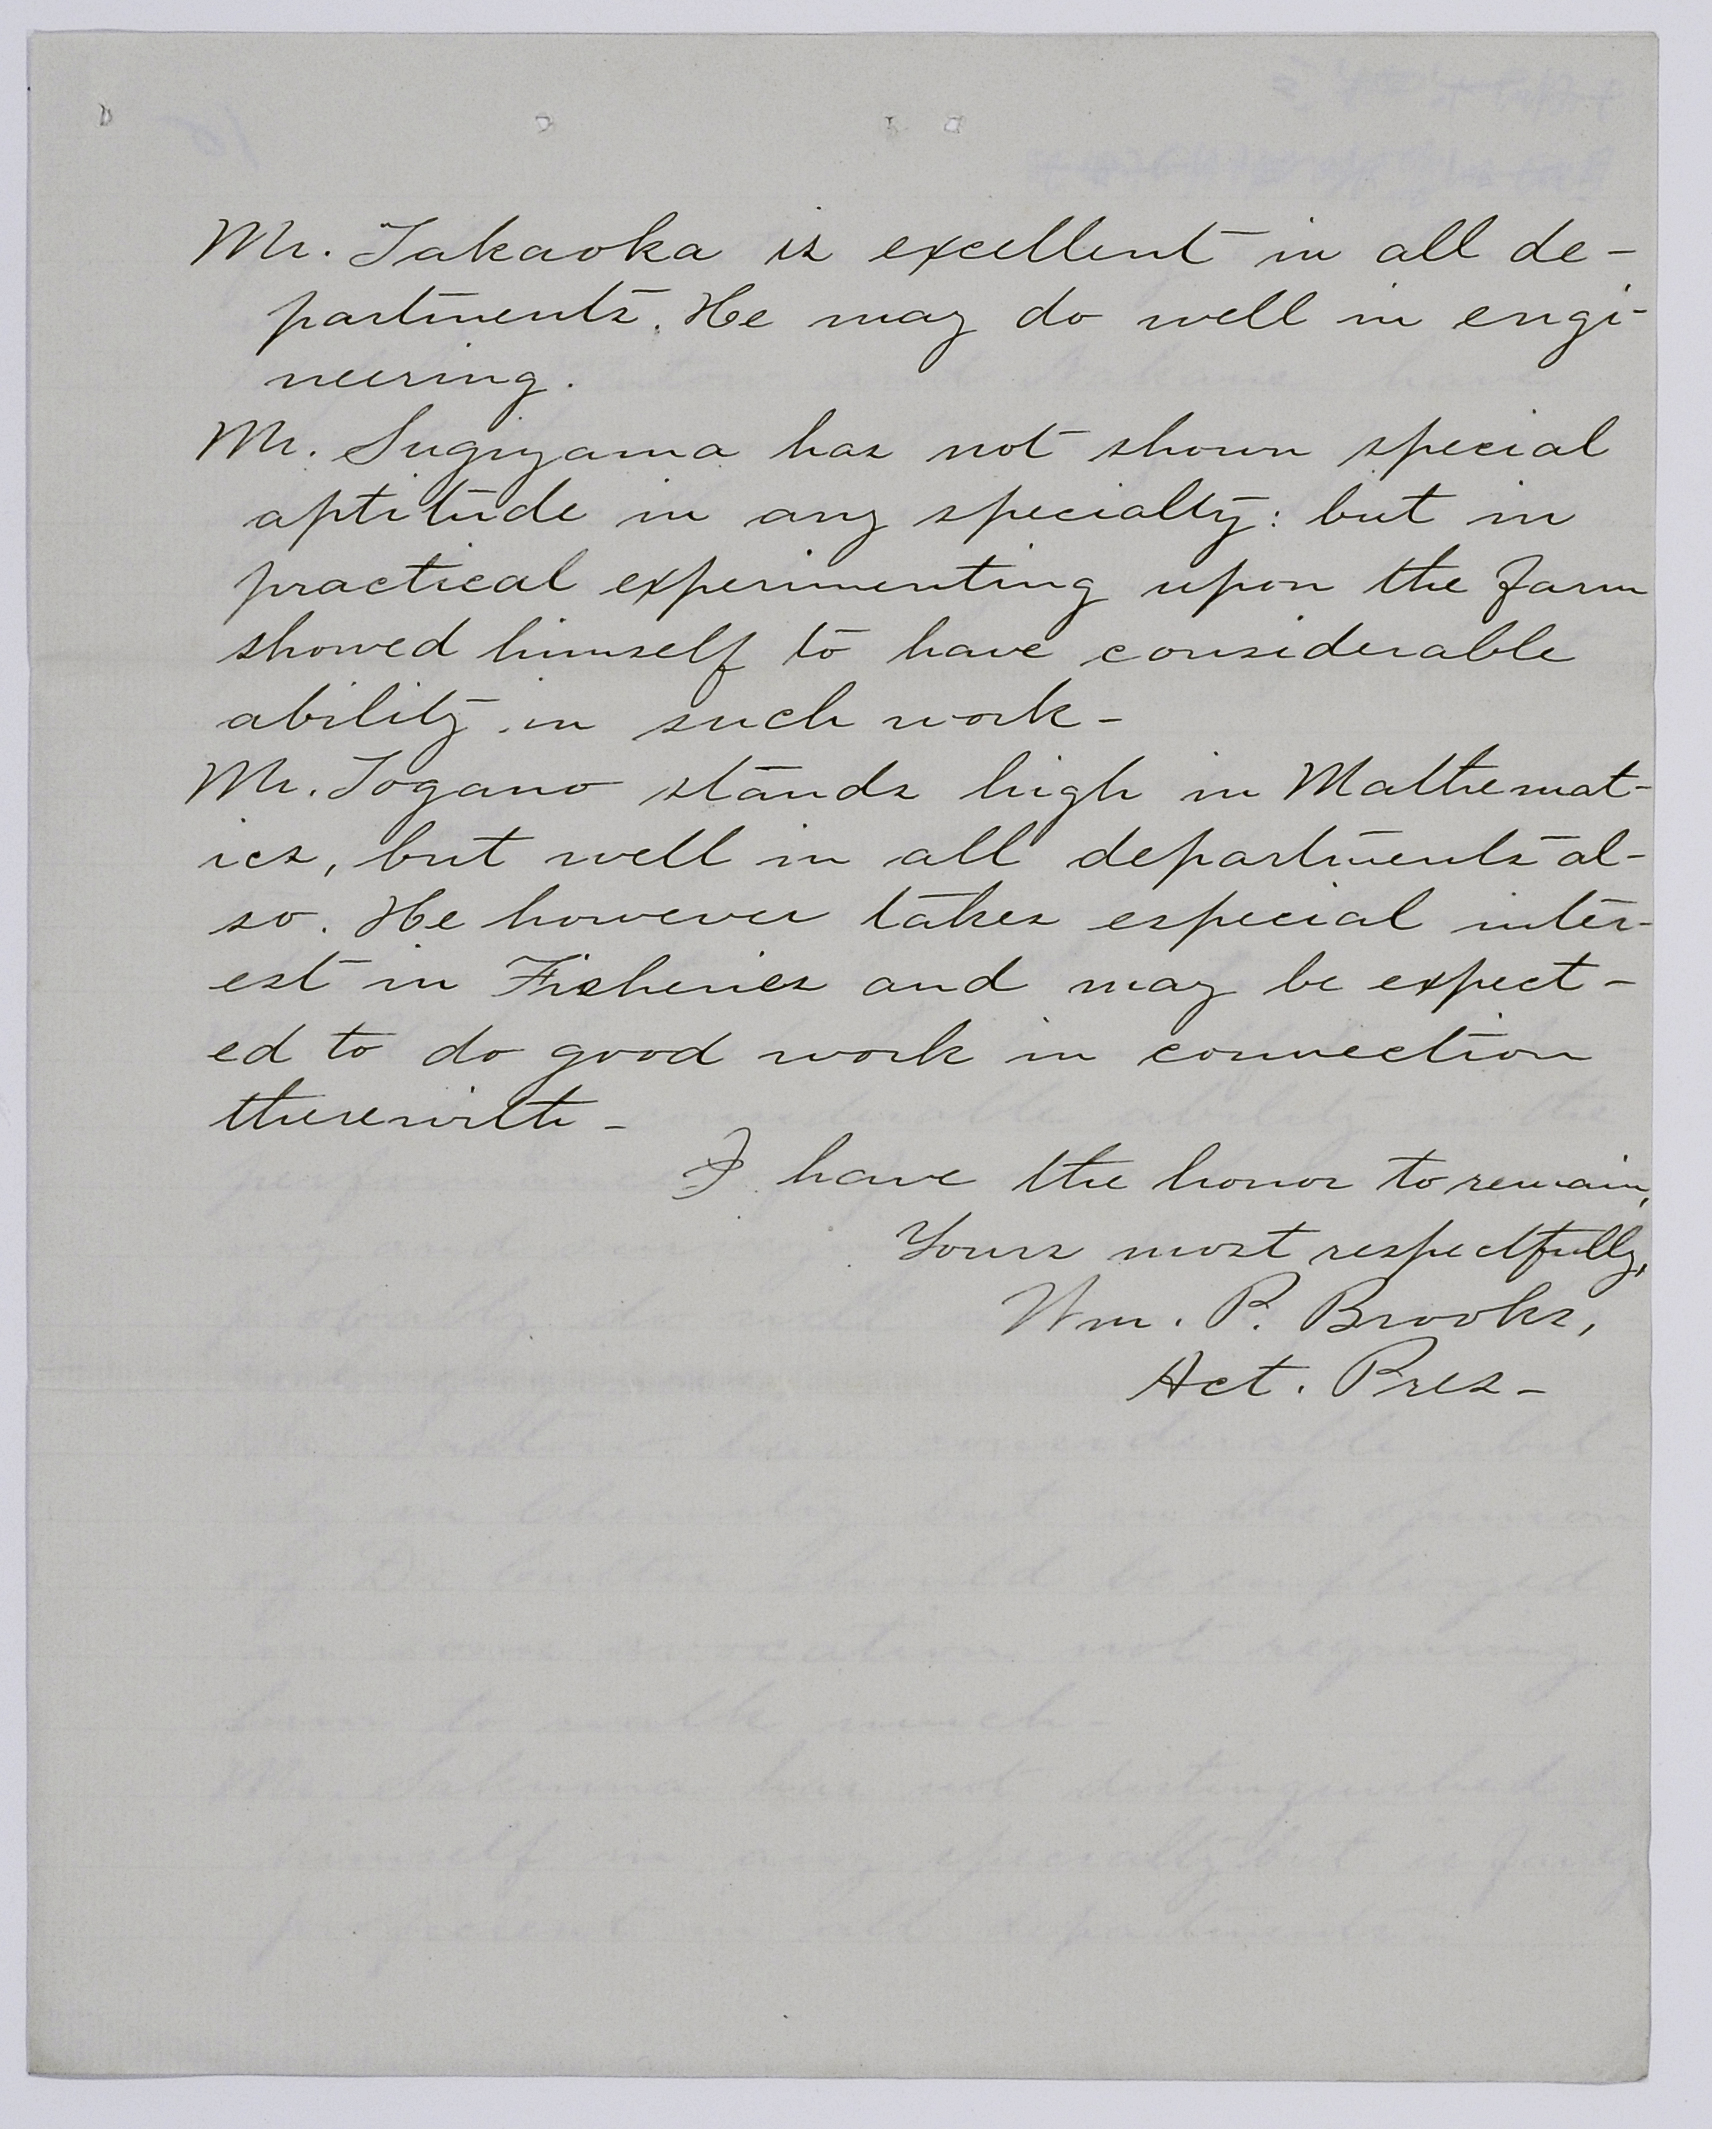 Mr. Takaoka is excellent in all de-
partments. He may do well in engi-
neering.
Mr. Sugiyama has not shown special
aptitude in any specialty: but in
practical experimenting upon the farm
showed himself to have considerable
ability in such work-
Mr. Togano stands high in Mathemat-
ics, but well in all departments al-
so. He however takes especial inter-
est in Fisheries and may be expect-
ed to do good work in connection
therewith-
I have the honor to remain,
Yours most respectfully,
Wm. P. Brooks,
Act. Pres-